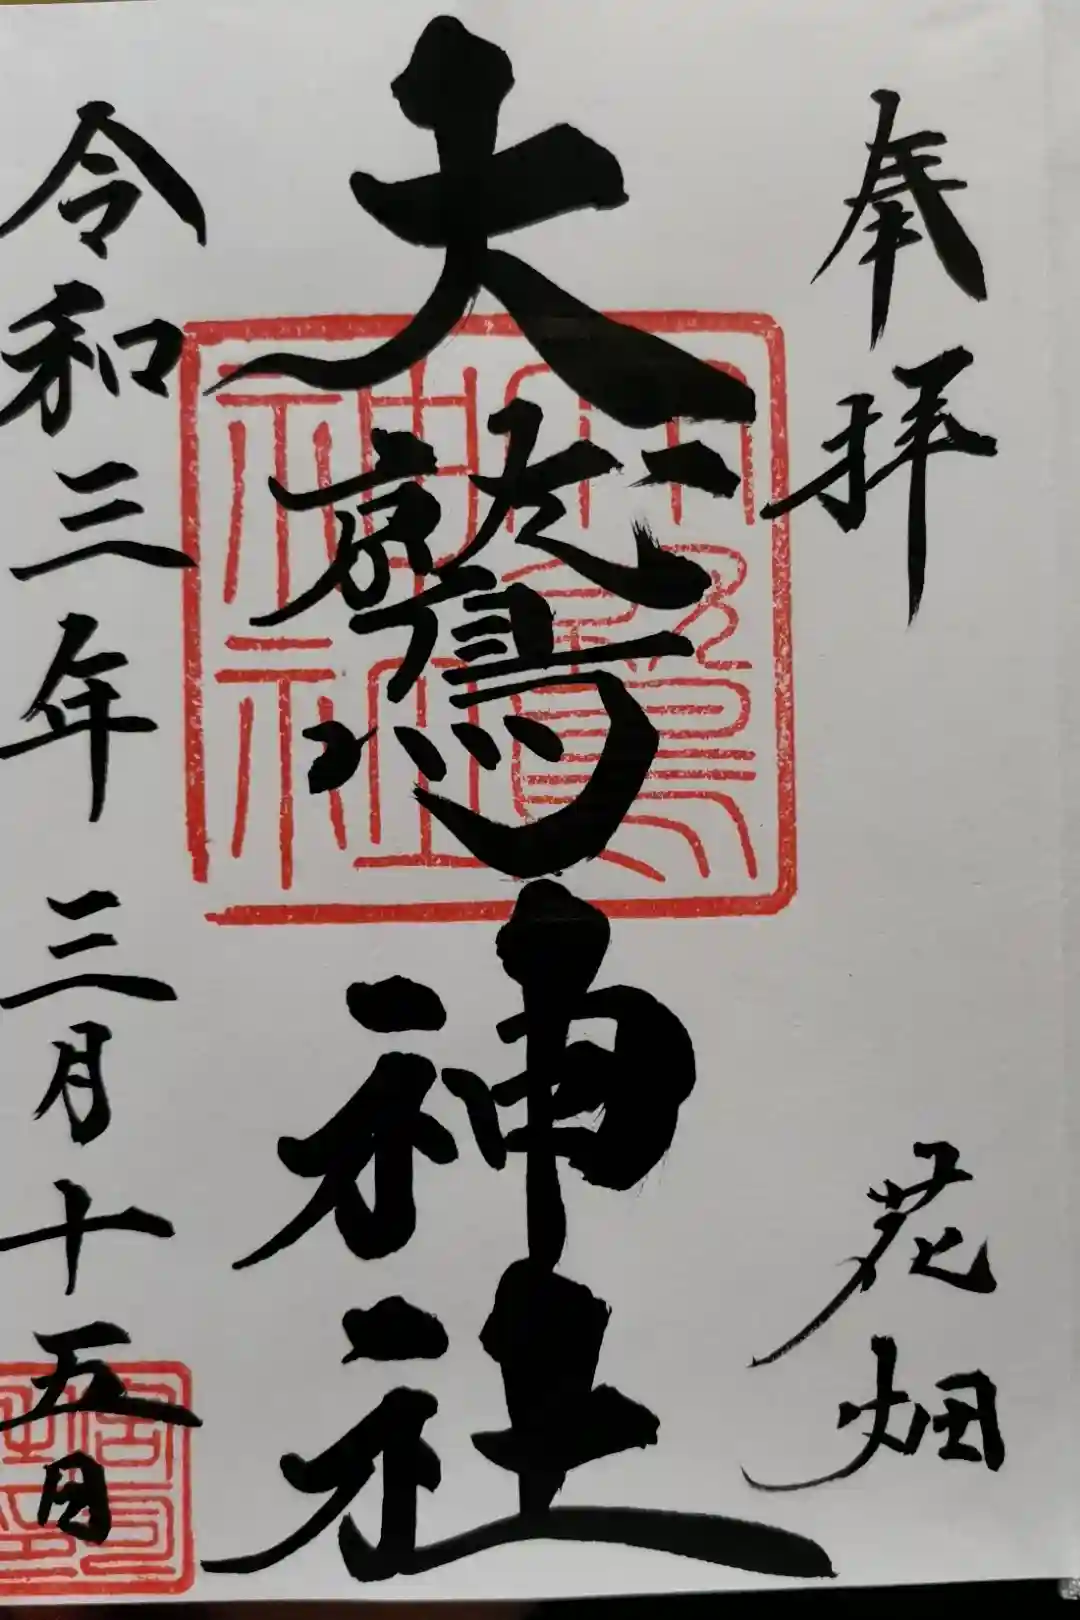 奉拝
花畑
大鷲神社
大鷲神社
令和三年三月十五日
宮司之印